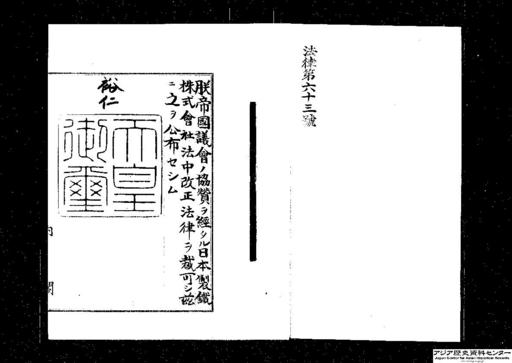 法律第六十三號
朕帝國議會ノ協贊ヲ經タル日本製鐵
株式會社法中改正法律ヲ裁可シ玆
ニ之ヲ公布セシム
裕仁
天皇
御璽
内閣
アジア歴史資料センター
Japan Center for Asian Historical Records